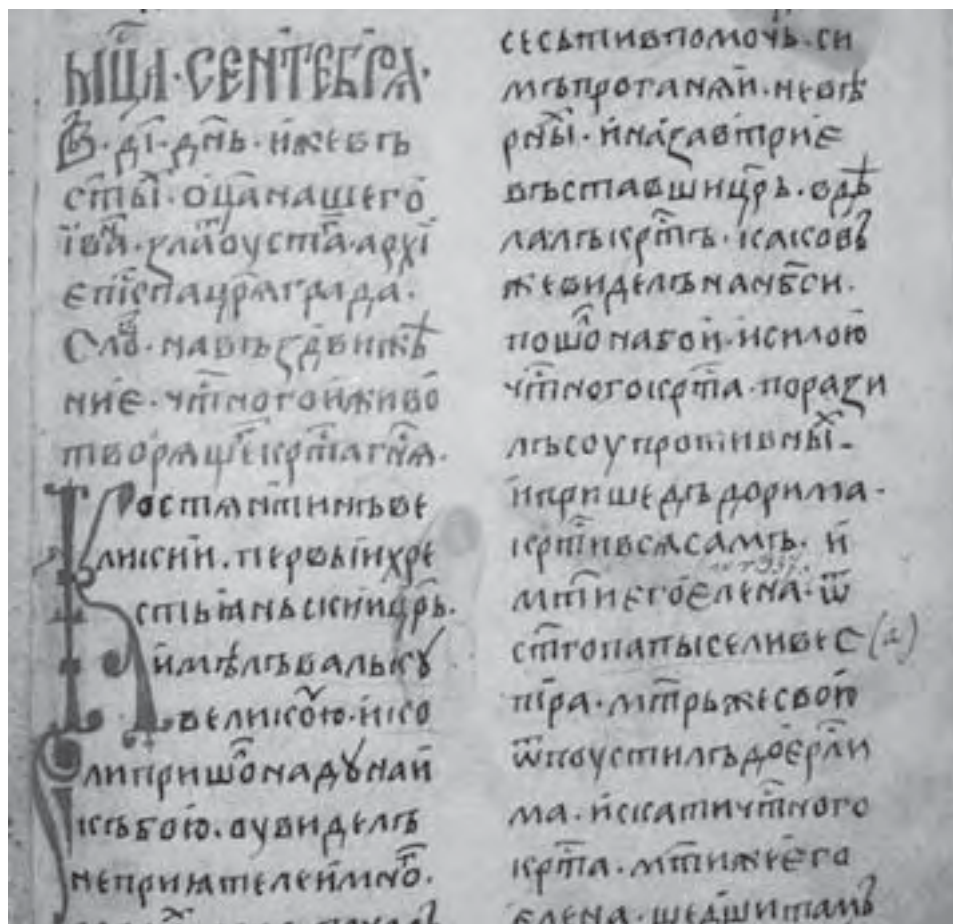 мц҃а · сентебрѧ ·
В · д҃і · дн҃ь · иже въ
ст҃ы · оц҃а нашего
їѡ҃а · златоуста · архї
епіскпа цр҃ѧграда ·
Сло · на въздвиже
ние · чт҃ного и живо
творѧще крт҃а гн҃ѧ ·
Костѧнтинъ ве
лікии . первыи хре
стьꙗньскии цр҃ь .
имѣлъ валъку
великою · и ко
ли пришо на дунаи
къ бою . оувиделъ
неприꙗтелеи мно ·
се сьти в помочь . си
мъ проганѧи . невѣ
рны · и на завтрие
въставши цр҃ь . вдѣ
лалъ крт҃ъ · каков
же виделъ на нб҃си .
пошо на бои · и силою
чт҃ного крт҃а · порази
лъ соупротивны
и пришедъ до рима ·
крт҃и всѧ самъ . и
мт҃и его елена · ѿ
ст҃го папы селивес (а)
піра · мт҃рь же свою
ѿпоустилъ до ерли
ма · искати чт҃ного
крт҃а · мт҃и же его
елена · шедши тамъ